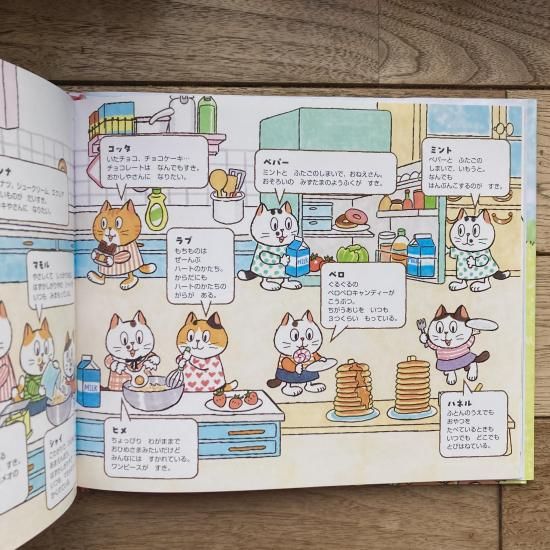 コッタ
いたチョコ、チョコケーキ…
チョコレートは なんでもすき。
おかしやさんに なりたい。
ペパー
ミントと ふたごのしまいで、おねえさん。
おそろいの みずたまのようふくが すき。
ミント
ペパーと ふたごの
しまいで、いもうと。
なんでも
はんぶんこするのが すき。
ナツ、シュークリーム、エクレア
いものが だいすき。
キヤさんに なりたい。
ラブ
もちものは
ぜーんぶ
ハートのかたち。
からだにも
ハートのかたちの
がらが ある。
マモル
やさしくて
いつも みまもる。
ペロ
ぐるぐるの
ペロペロキャンディーが
こうぶつ。
ちがうあじを いつも
3つくらい もっている。
MILK
MILK
MILK
ハネル
ふとんのうえでも
おやつを
たべているときも
いつでも どこでも
とびはねている。
ヒメ
ちょっぴり わがままで
おひめさまみたいだけど
みんなには すかれている。
ワンピースが すき。
シャイ